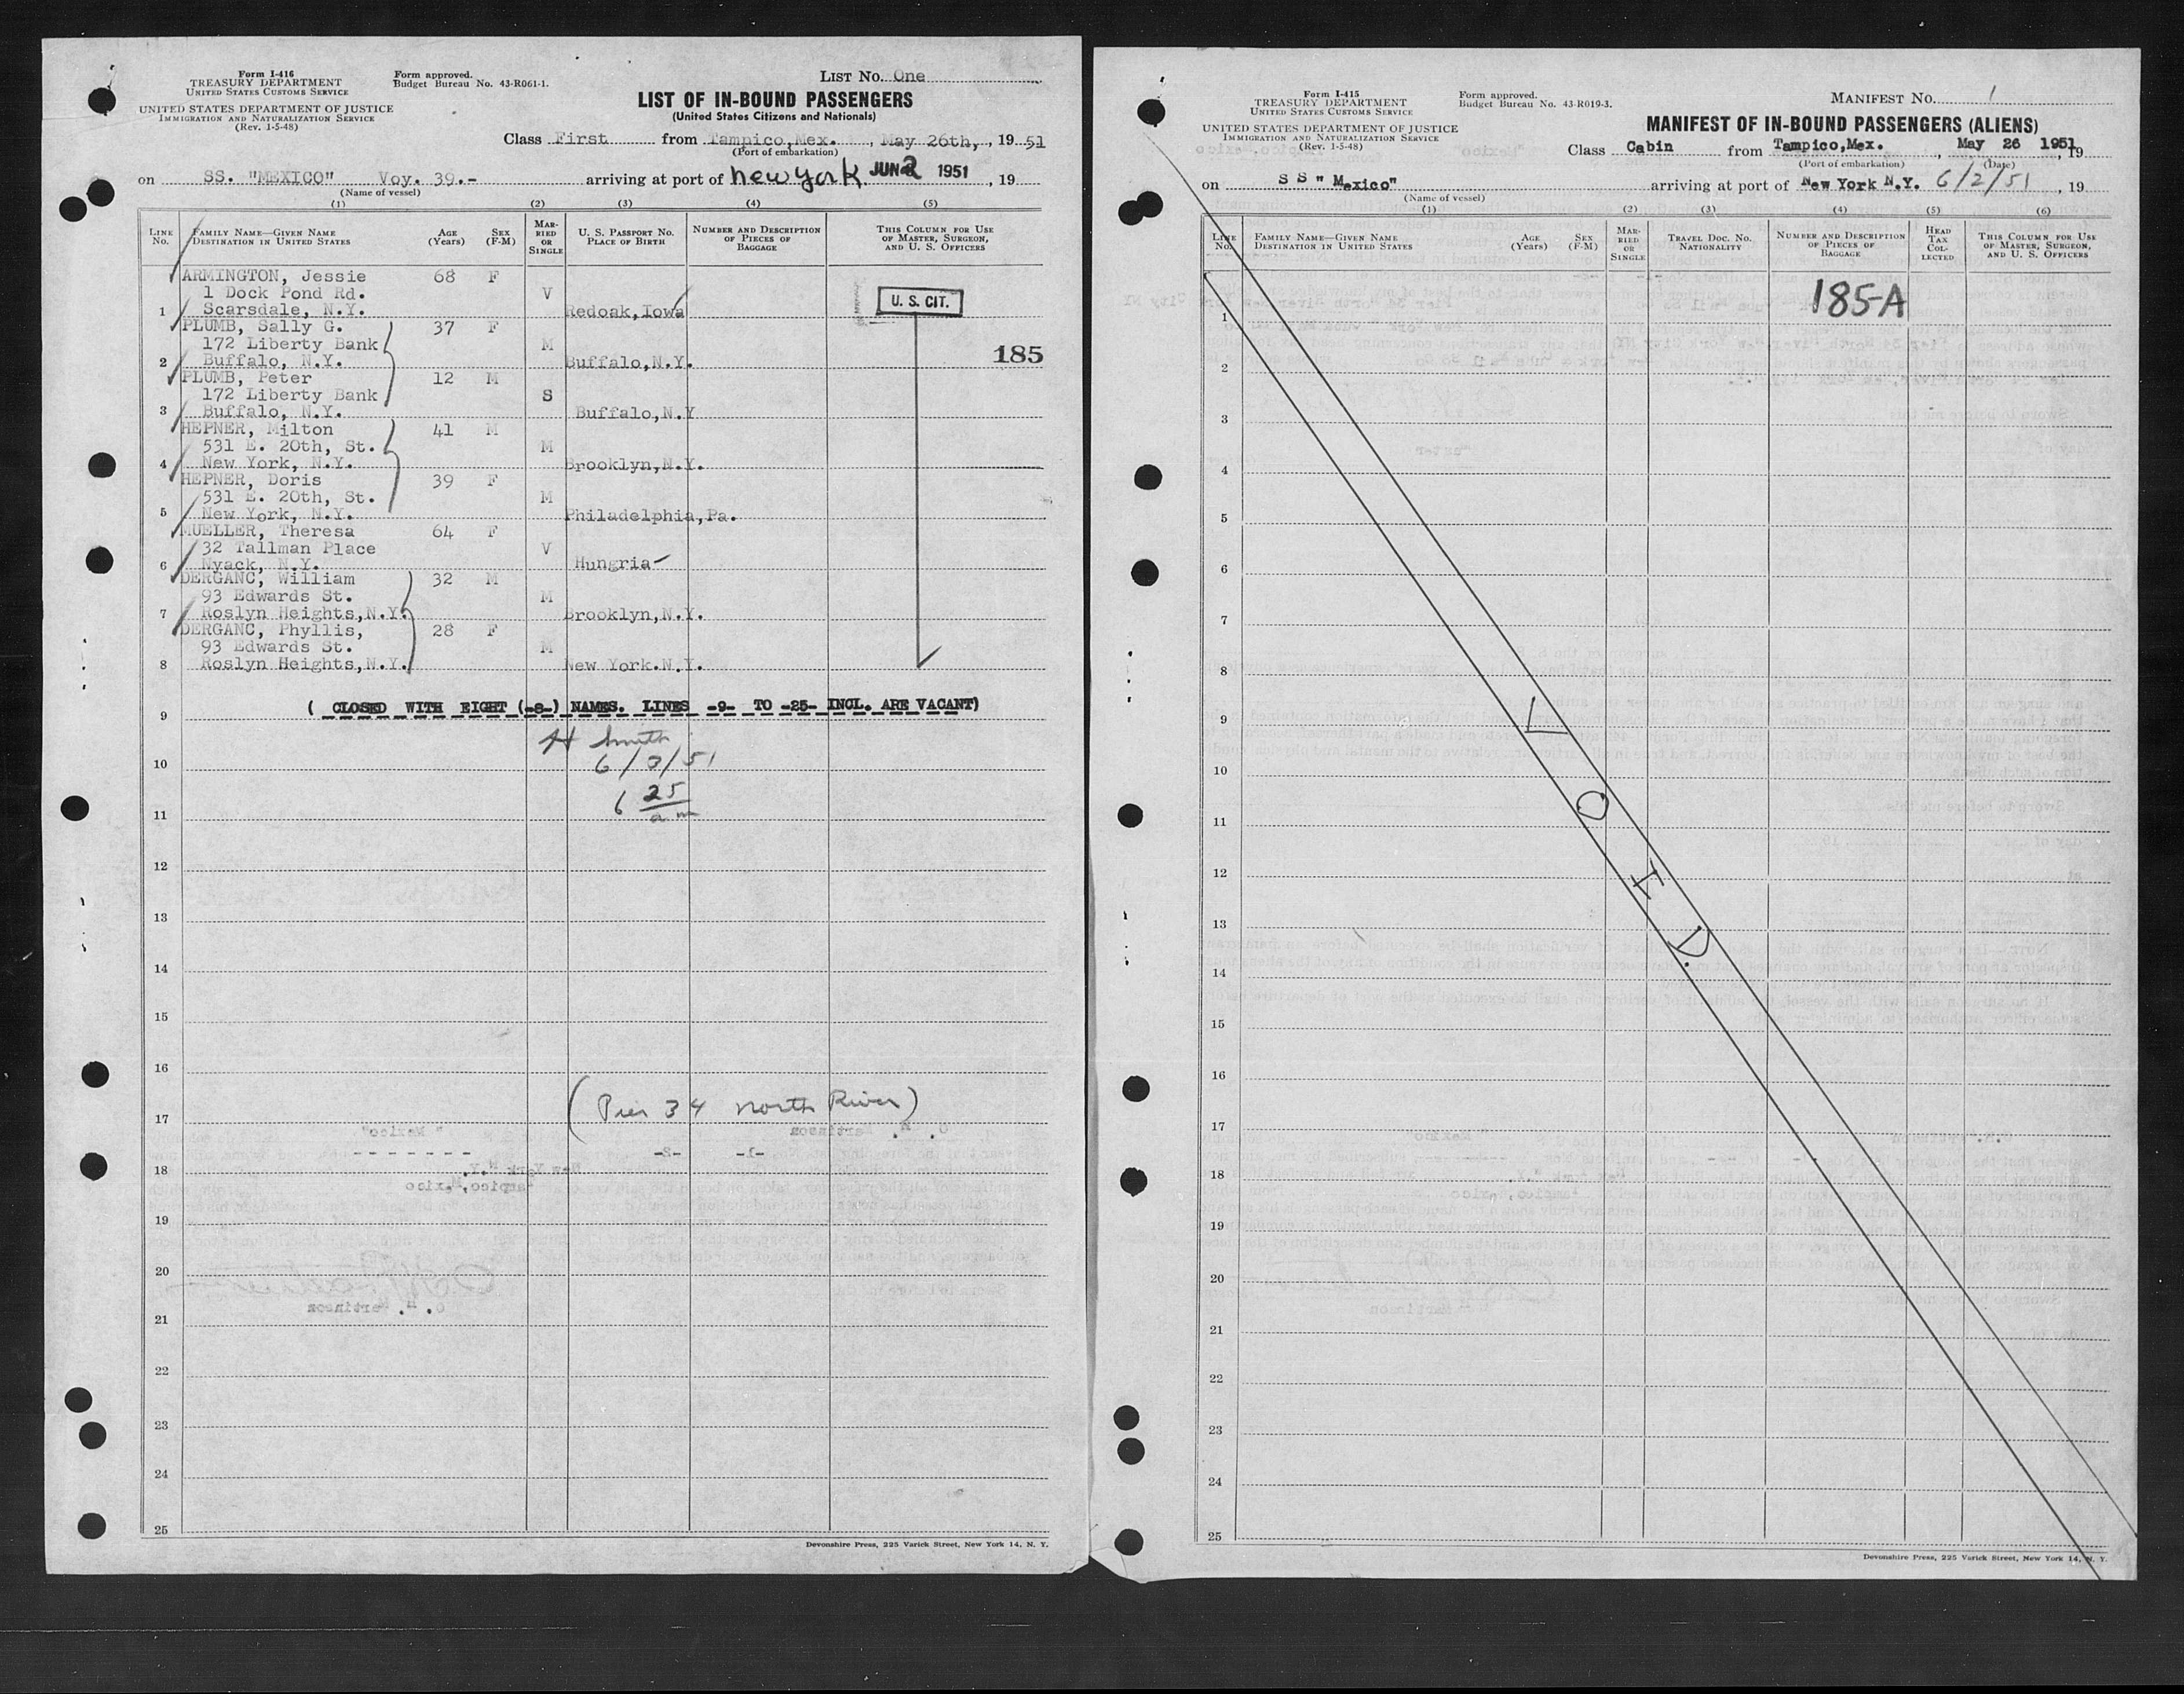 Form I-416
TREASURY DEPARTMENT
UNITED STATES CUSTOMS SERVICE
UNITED STATES DEPARTMENT OF JUSTICE
IMMIGRATION AND NATURALIZATION SERVICE
(Rev. 1-5-48)
Form approved.
Budget Bureau No. 43-R061-1.
LIST NO. One
LIST OF IN-BOUND PASSENGERS
(United States Citizens and Nationals)
Class First from Tampico,Mex. , May 26th, , 19 51
(Port of embarkation)
on SS. "MEXICO" Voy. 39.- arriving at port of New York JUN 2 1951 , 19
(Name of vessel)
(1) (2) (3) (4) (5)
LINE NO. FAMILY NAME—GIVEN NAME DESTINATION IN UNITED STATES AGE (YEARS) SEX (F-M) MARRIED OR SINGLE U. S. PASSPORT NO. PLACE OF BIRTH NUMBER AND DESCRIPTION OF PIECES OF BAGGAGE THIS COLUMN FOR USE OF MASTER, SURGEON, AND U. S. OFFICERS
ARMINGTON, Jessie 68 F
1 Dock Pond Rd. V U. S. CIT.
1 Scarsdale, N.Y. Redoak,Iowa
PLUMB, Sally G. 37 F
172 Liberty Bank M 185
2 Buffalo, N.Y. Buffalo,N.Y.
PLUMB, Peter 12 M
172 Liberty Bank S
3 Buffalo, N.Y. Buffalo,N.Y
HEPNER, Milton 41 M
531 E. 20th, St. M
4 New York, N.Y. Brooklyn,N.Y.
HEPNER, Doris 39 F
531 E. 20th, St. M
5 New York, N.Y. Philadelphia,Pa.
MUELLER, Theresa 64 F
32 Tallman Place V
6 Nyack, N.Y. Hungria
DERGANC, William 32 M
93 Edwards St. M
7 Roslyn Heights,N.Y. Brooklyn,N.Y.
DERGANC, Phyllis, 28 F
93 Edwards St. M
8 Roslyn Heights,N.Y. New York.N.Y.
9 ( CLOSED WITH EIGHT (-8-) NAMES. LINES -9- TO -25- INCL. ARE VACANT)
H Smith
10 6/3/51
11 6 25 am
12
13
14
15
16
17 (Pier 34 North River)
18
19
20
21
22
23
24
25
Devonshire Press, 225 Varick Street, New York 14, N. Y.
Form I-415
TREASURY DEPARTMENT
UNITED STATES CUSTOMS SERVICE
UNITED STATES DEPARTMENT OF JUSTICE
IMMIGRATION AND NATURALIZATION SERVICE
(Rev. 1-5-48)
Form approved.
Budget Bureau No. 43-R019-3.
MANIFEST NO. 1
MANIFEST OF IN-BOUND PASSENGERS (ALIENS)
Class Cabin from Tampico,Mex. , May 26 1951, 19
(Port of embarkation) (Date)
on S S " Mexico" arriving at port of New York N.Y. 6/2/51 , 19
(Name of vessel)
(1) (2) (3) (4) (5) (6)
LINE NO. FAMILY NAME—GIVEN NAME DESTINATION IN UNITED STATES AGE (YEARS) SEX (F-M) MARRIED OR SINGLE TRAVEL DOC. NO. NATIONALITY NUMBER AND DESCRIPTION OF PIECES OF BAGGAGE HEAD TAX COLLECTED THIS COLUMN FOR USE OF MASTER, SURGEON, AND U. S. OFFICERS
1 185-A
2
3
4
5
6
7
8
9
10
11
12
13
14
15
16
17
18
19
20
21
22
23
24
25
V O I D.
Devonshire Press, 225 Varick Street, New York 14, N. Y.